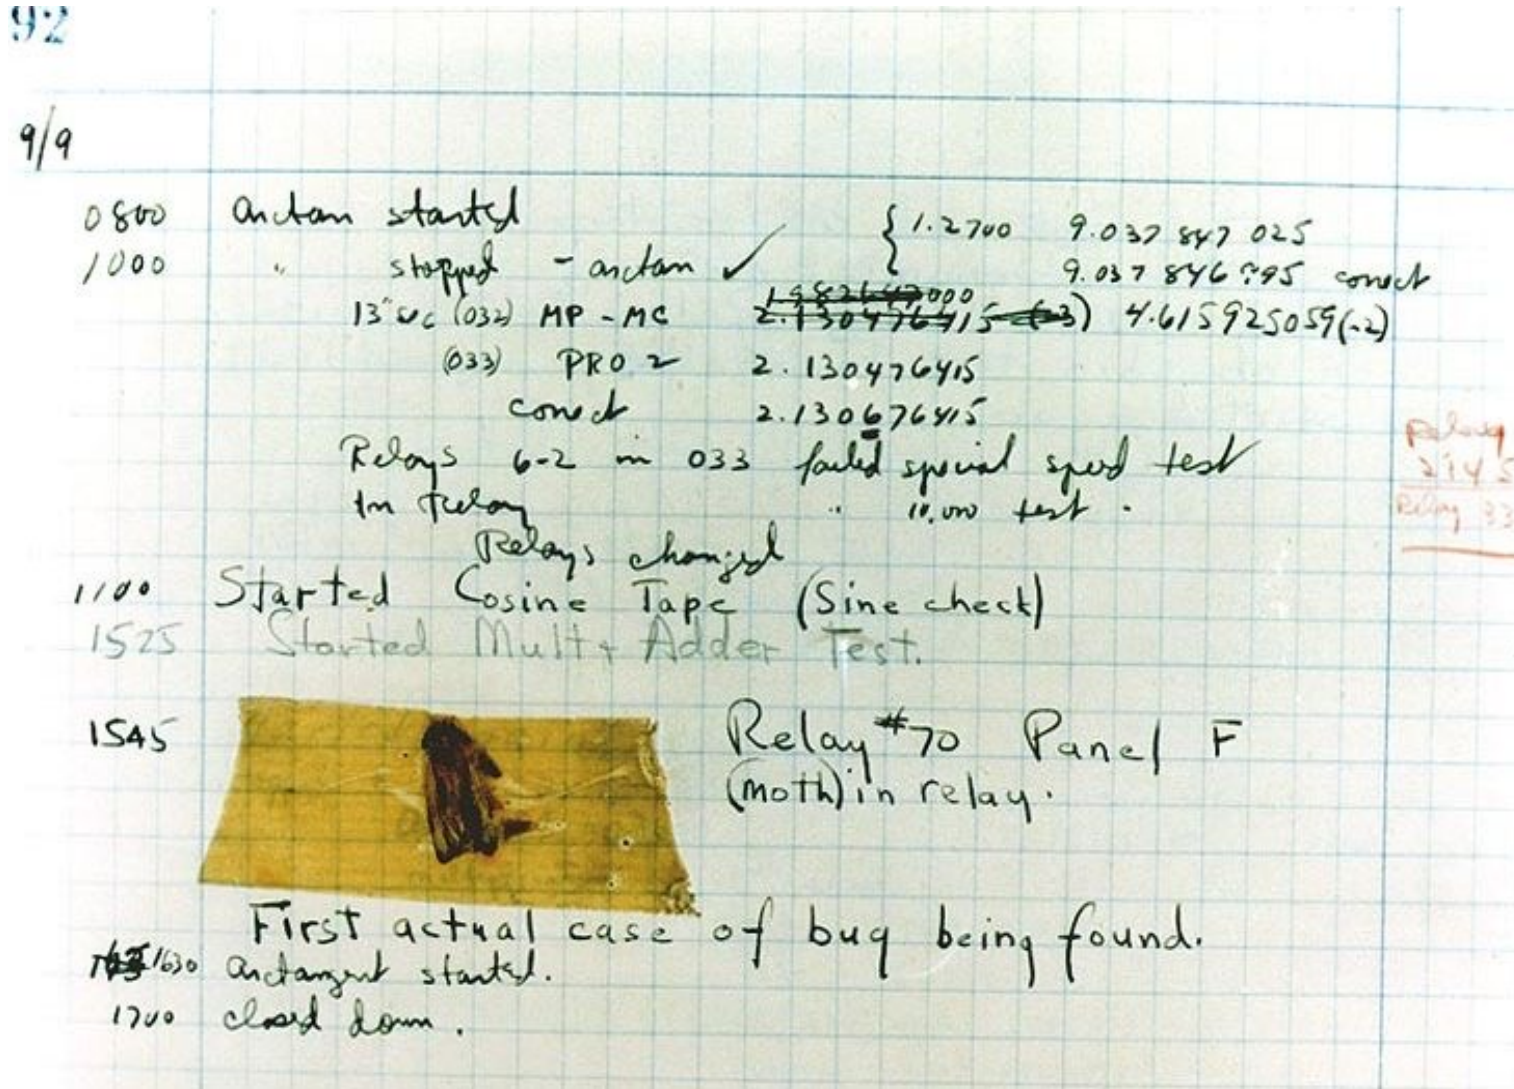 92
9/9
0800 arctan started { 1.2700 9.037 847 025
1000 " stopped - arctan ✓ 9.037 846 795 correct
13"uc (032) MP - MC 1.982647000
2.130476415 (-3) 4.615925059(-2)
(033) PRO 2 2.130476415
correct 2.130676415
Relays 6-2 in 033 failed special speed test
In relay " 10,000 test .
Relays changed
Relay
2145
Relay 33
1100 Started Cosine Tape (Sine check)
1525 Started Mult + Adder Test.
1545 Relay #70 Panel F
(moth) in relay.
First actual case of bug being found.
1630 arctangent started.
1700 closed down .